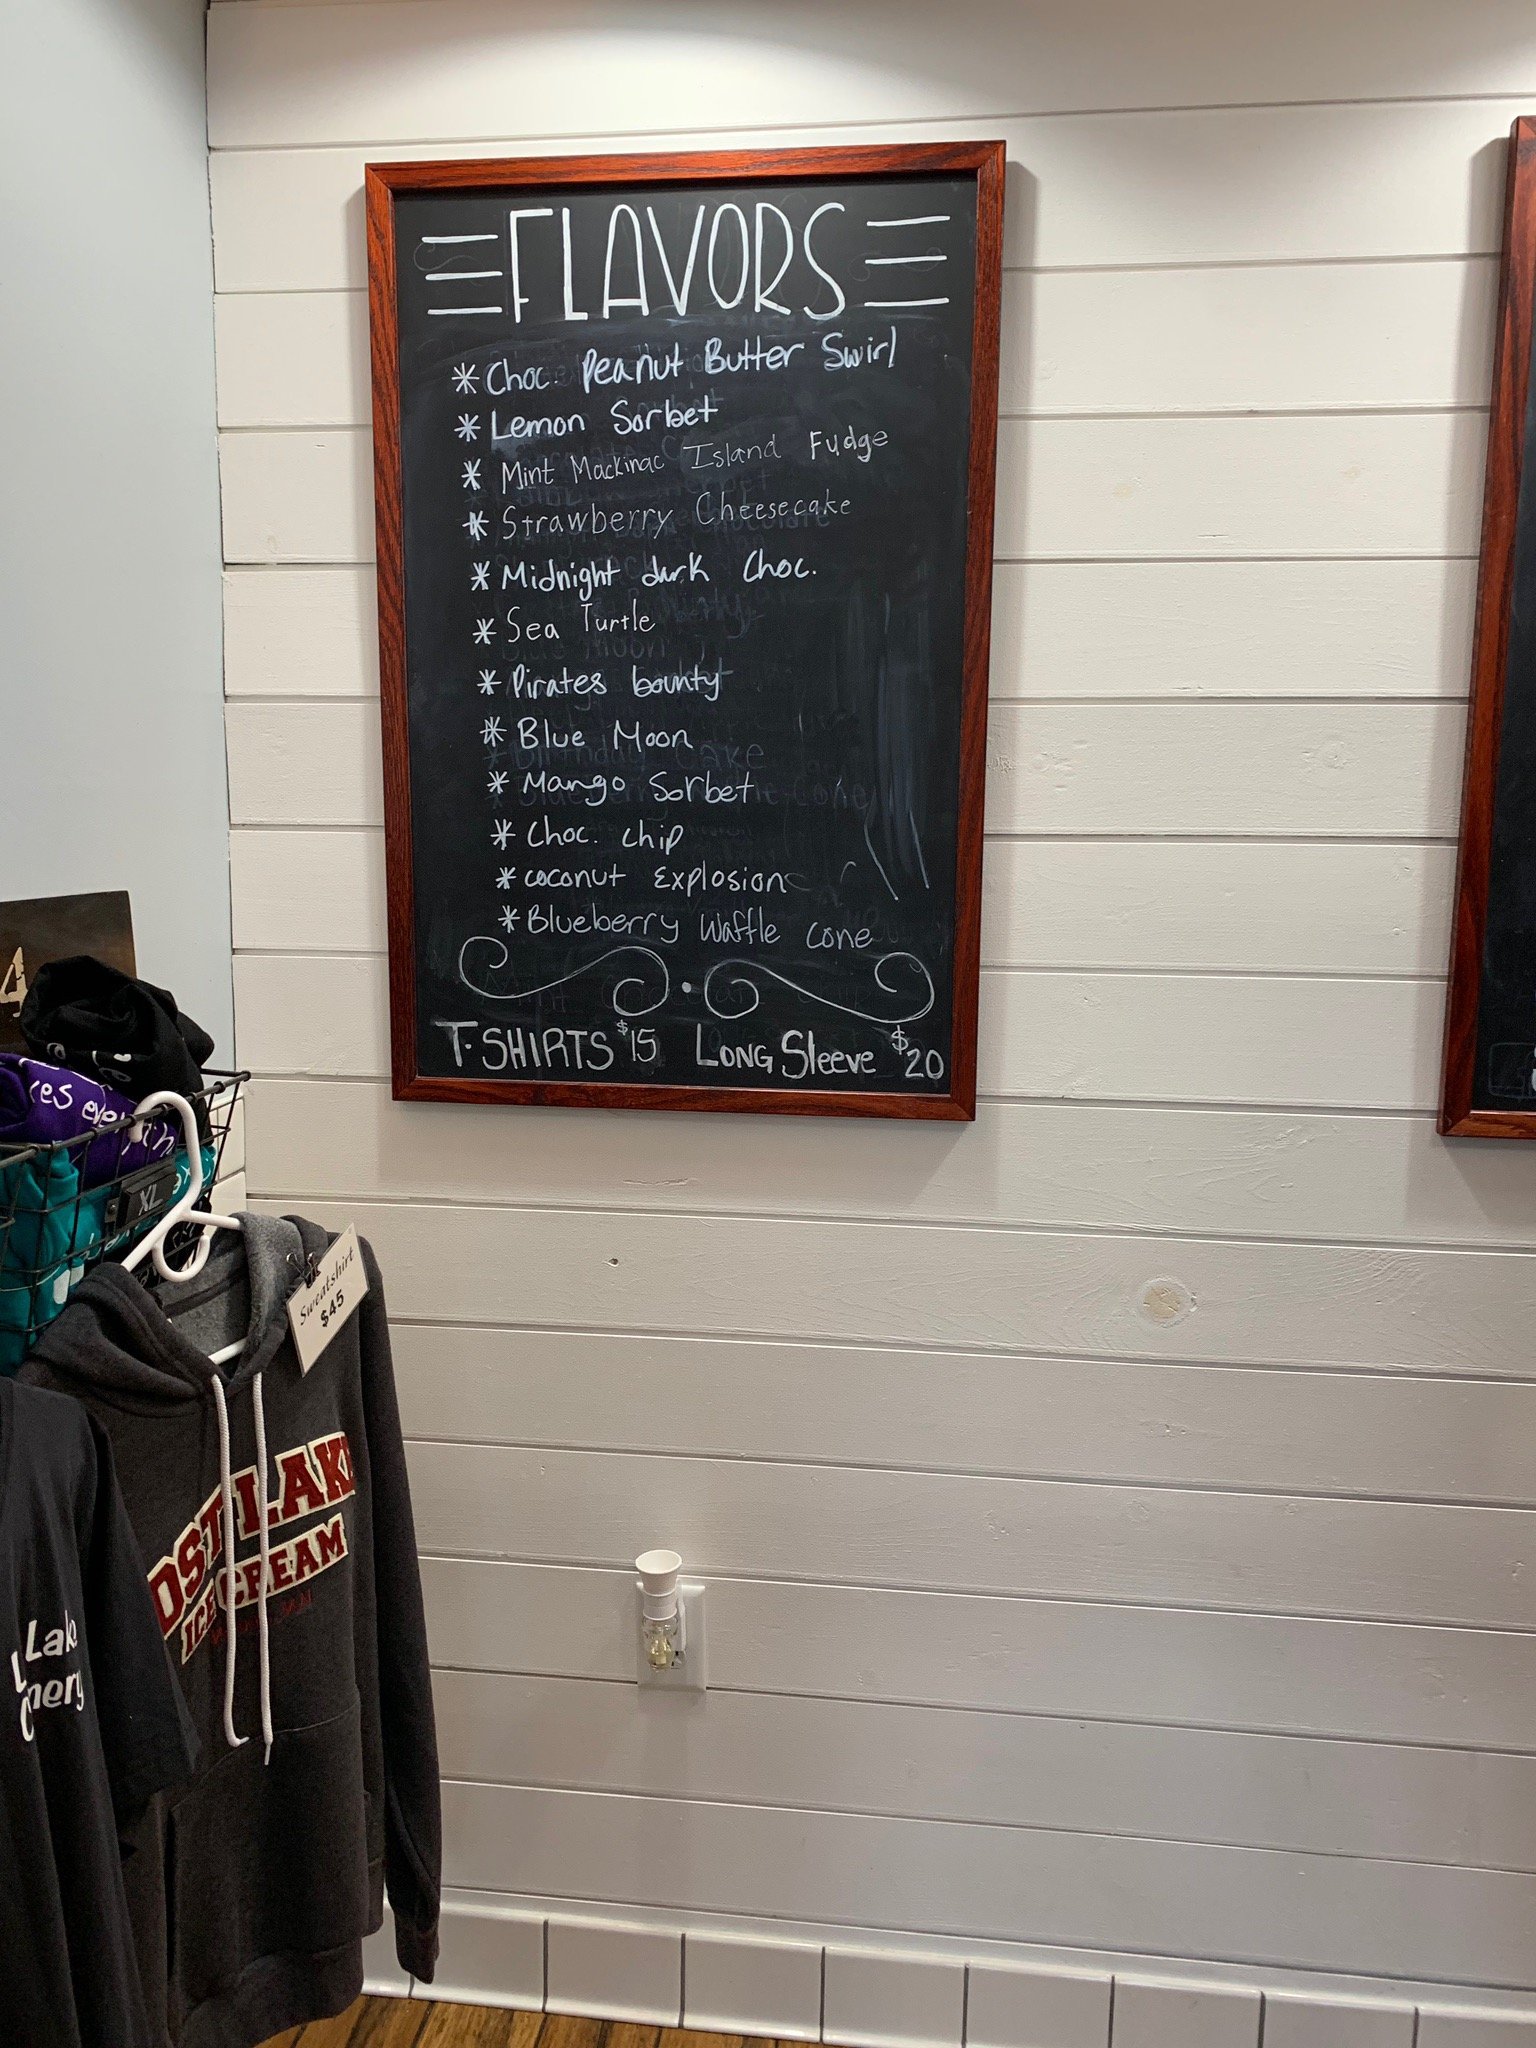 FLAVORS
* Choc. Peanut Butter Swirl
* Lemon Sorbet
* Mint Mackinac Island Fudge
* Strawberry Cheesecake
* Midnight dark Choc.
* Sea Turtle
* Pirates bounty
* Blue Moon
* Mango Sorbet
* Choc. chip
* coconut Explosion
* Blueberry Waffle cone
T-SHIRTS $15 LONG Sleeve $20
4
XL
Sweatshirt
$45
OST LAKE
ICE CREAM
Lake